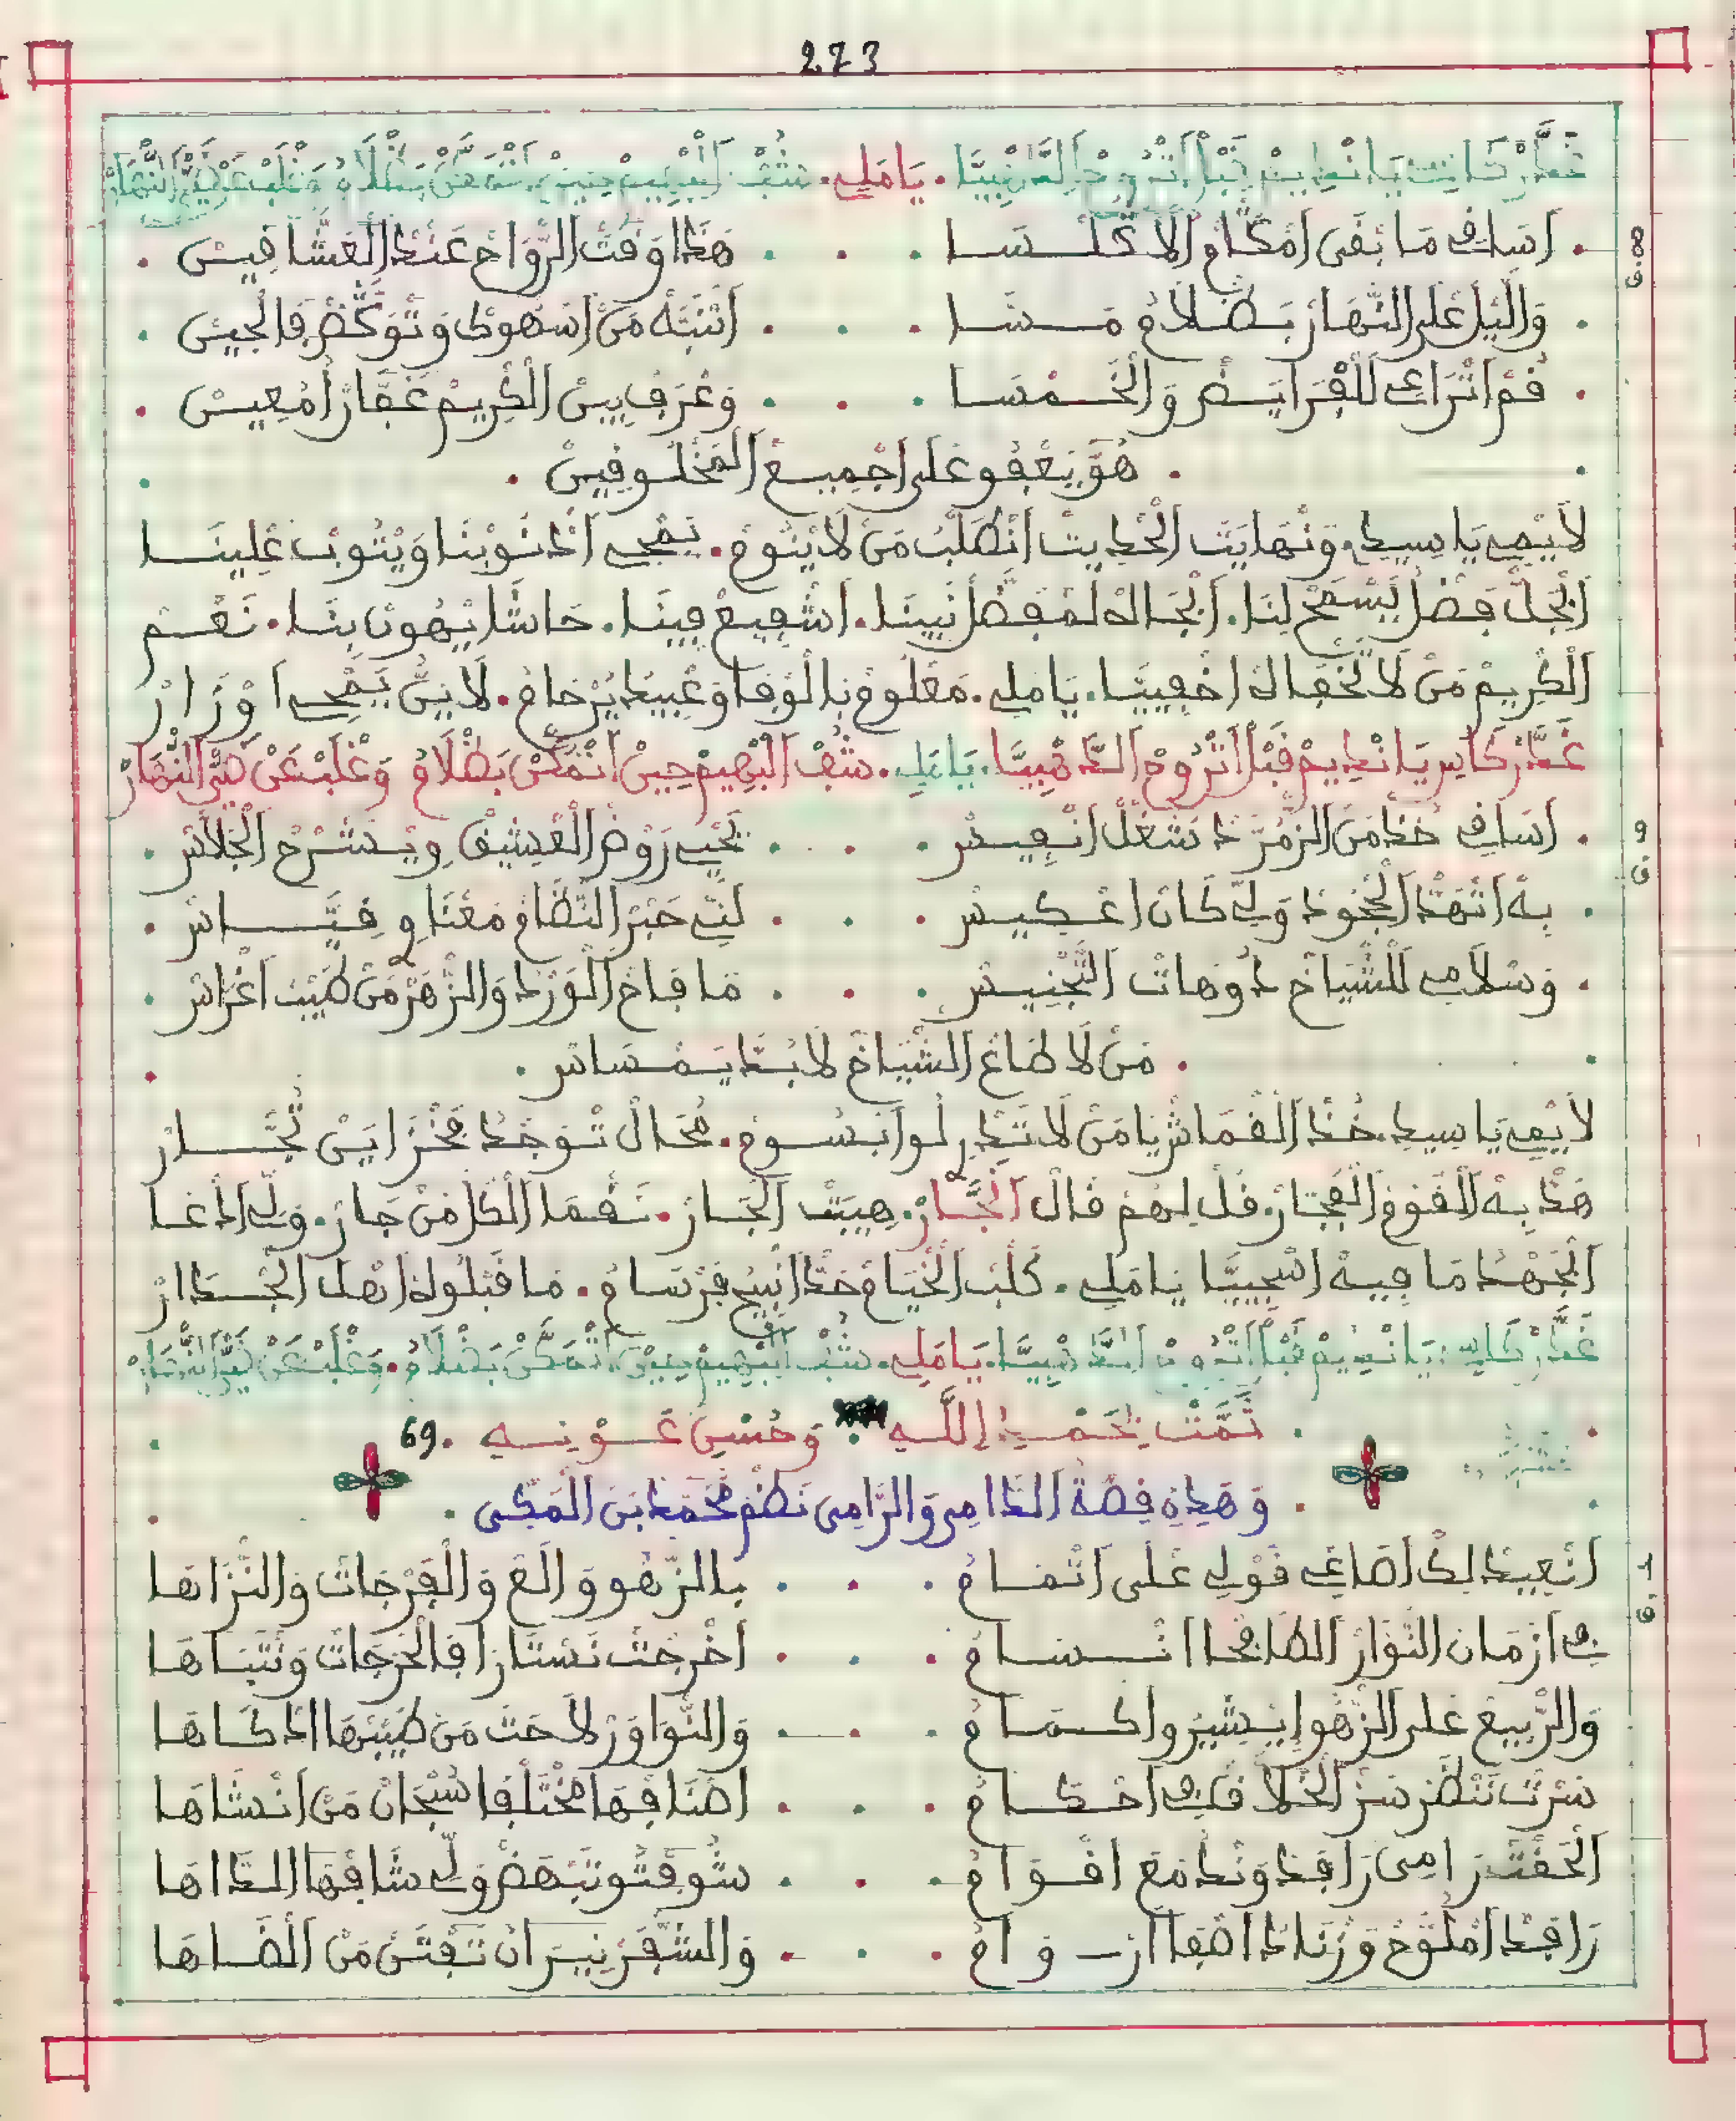 273
غَدَّرْ كَاسِ يَا نْدِيمْ قَبْلْ اَتْرُوحْ اَلذَّهْبِيَّا . يَامَلِي . شُفْ اَلْبْهِيمْ حِينْ اَتْمَكَّنْ بَظْلَامُ وَغْلَبْ عَنْ ضَيِّ اَلنّْهَارْ
8.ق
. اَسَاقِي مَا بْقَى اَمْكَامْ اِلَا كَلْسَا . . . هَذَا وَقْتْ الرّْوَاحْ عَنْدْ الْعَشَّاقِينْ .
. وَاللّيْلْ عْلَى النّْهَارْ بَظْلَامُ مَسَّا . . . اَتْنَبَّهْ مَنْ اَسْهُوكْ وَتْوَكَّضْ فَالْحِينْ .
. قُمْ اَتْرَاعِي لَلْفْرَايَضْ وَالْخَمْسَا . . . وَعْرَفْ بِينْ الْكْرِيمْ غَفَّارْ اُمْعِينْ .
. هُوَّ يَعْفُو عْلَى اَجْمِيعْ اَلْمَخْلُوقِينْ .
لَايْمِي يَا سِيدِي . وَنْهَايَتْ اَلْحْدِيتْ اَنْطَلْبُ مَنْ لَا يْنُومْ . يَمْحِي اَذْنُوبْنَا وَيْتُوبْ عْلِينَا
اَبْجَلّْ فَضْلُ يَسْمَحْ لِنَا . اَبْجَاهْ لَمْفَضَّلْ نْبِينَا . اَشْفِيعْ فِينَا . حَاشَا يْهُونْ بِنَا . نَعْمْ
اَلْكْرِيمْ مَنْ لَا تَخْفَاهْ اَخْفِيَّا . يَامَلِي . مَعْلُومْ بَالْوْفَا وَعْبِيدُ يَرْحَامْ . لَابَنّْ يَمْحِي اَوْزَارْ
غَدَّرْ كَاسِ يَا نْدِيمْ قَبْلْ اَتْرُوحْ اَلذَّهْبِيَّا . يَامَلِي . شُفْ اَلْبْهِيمْ حِينْ اَتْمَكَّنْ بَظْلَامُ وَغْلَبْ عَنْ ضَيِّ اَلنّْهَارْ
9 ق
. اَسَاقِي خُذْ مَنْ الرّْمُزْ دَ شَغْلْ اَنْفِيسْ . . . يَحْيِي رَوْضْ الْعْشِيقْ وِيْسَرَّحْ اَلْجْلَاسْ .
. بِهْ اَنْهَدّْ اَلْجْحُودْ وَلِّي كَانْ اَعْكِيسْ . . . لَنِّي حَبْرْ النَّظَّامْ مَعْنَاوِي فَتَّاسْ .
. وَسْلَامِي لَلشّْيَاخْ دُوهَاتْ اَلتَّجْنِيسْ . . . مَا فَاحْ اَلْوَرْدْ وَالزّْهَرْ مَنْ طَيْبْ اَغْرَاسْ .
. مَنْ لَا طَاعْ اَلشّْيَاخْ لَابُدَّ يَمْسَاسْ .
لَايْمِي يَا سِيدِي . خُذْ اَلْقْمَاشْ يَا مَنْ لَا تَدْرِي لُو اَبْسُومْ . مُحَالْ تُوجْدُ فَخْزَايَنْ تُجَّارْ
هَدّْ بِهْ اَلْقَوْمْ اَلْفُجَّارْ . قُلْ لِهُمْ قَالْ اَلنَّجَّارْ . هِيبَتْ اَلْجَارْ . نَقْمَا اَلْكُلّْ مَنْ جَارْ . وَلِّي اَدْعَا
اَلْجَهْدْ مَا فِيهْ اَسْجِيَّا يَامَلِي . كَلْبْ اَلْخْيَامْ حَدّْ اَنْبِيحْ فَرْسَامُ . مَا قَبْلُوهْ اَهْلْ اَلْجْدَارْ
غَدَّرْ كَاسِ يَا نْدِيمْ قَبْلْ اَتْرُوحْ اَلذَّهْبِيَّا . يَامَلِي . شُفْ اَلْبْهِيمْ حِينْ اَتْمَكَّنْ بَظْلَامُ . وَغْلَبْ عَنْ ضَيِّ اَلنّْهَارْ
. تَمَّتْ بِحَمْدِ اللَّهِ . وَحُسْنِ عَوْنِهِ . 69
. وَهَذِهِ قِصَّةُ اَلدَّامِي وَالرَّامِي نَظْمُ مُحَمَّدْ بَنْ الْمَكِّي .
1 ق
اَنْعِيدْ لِكْ اَصَاغِي قَوْلِي عْلَى اَتْمَامُ . . . بِالزّْهُو وَالَعْ وَالْفَرْجَاتْ وَالنّْزَاهَا
فِي اَزْمَانْ النُّوَّارْ اَلطَّافْحَا اَنْسَامُ . . . اَخْرَجْتْ نَسْتَارَا فَالْخَرْجَاتْ وَنْتْبَاهَا
وَالرّْبِيعْ عْلَى الزّْهُو اِيْشِيرْ وَاكْمَامُ . . . وَالنّْوَاوَرْ لَاحَتْ مَنْ طَيْبْهَا اَذْكَاهَا
سَرْتْ نَنْظَرْ سَرّْ اَلْخْلَاقْ فِي اَحْكَامُ . . . اَصْنَافْهَا مَخْتَلْفَا سُبْحَانْ مَنْ اَنْشَاهَا
اَلْحَقْتْ رَامِي رَافَدْ وَنْدَ مَعَ اَقْوَامُ . . . شُوقْتُو تَبْهَضْ وَلِّي شَافْهَا اَلدَّاهَا
رَافَدْ اَمْلَوَّحْ وَزْنَادْ اَصْفَا اَرْوَامُ . . . وَالشّْفَرْ نِيرَانْ تَفْتَنْ مَنْ اَلْضَاهَا